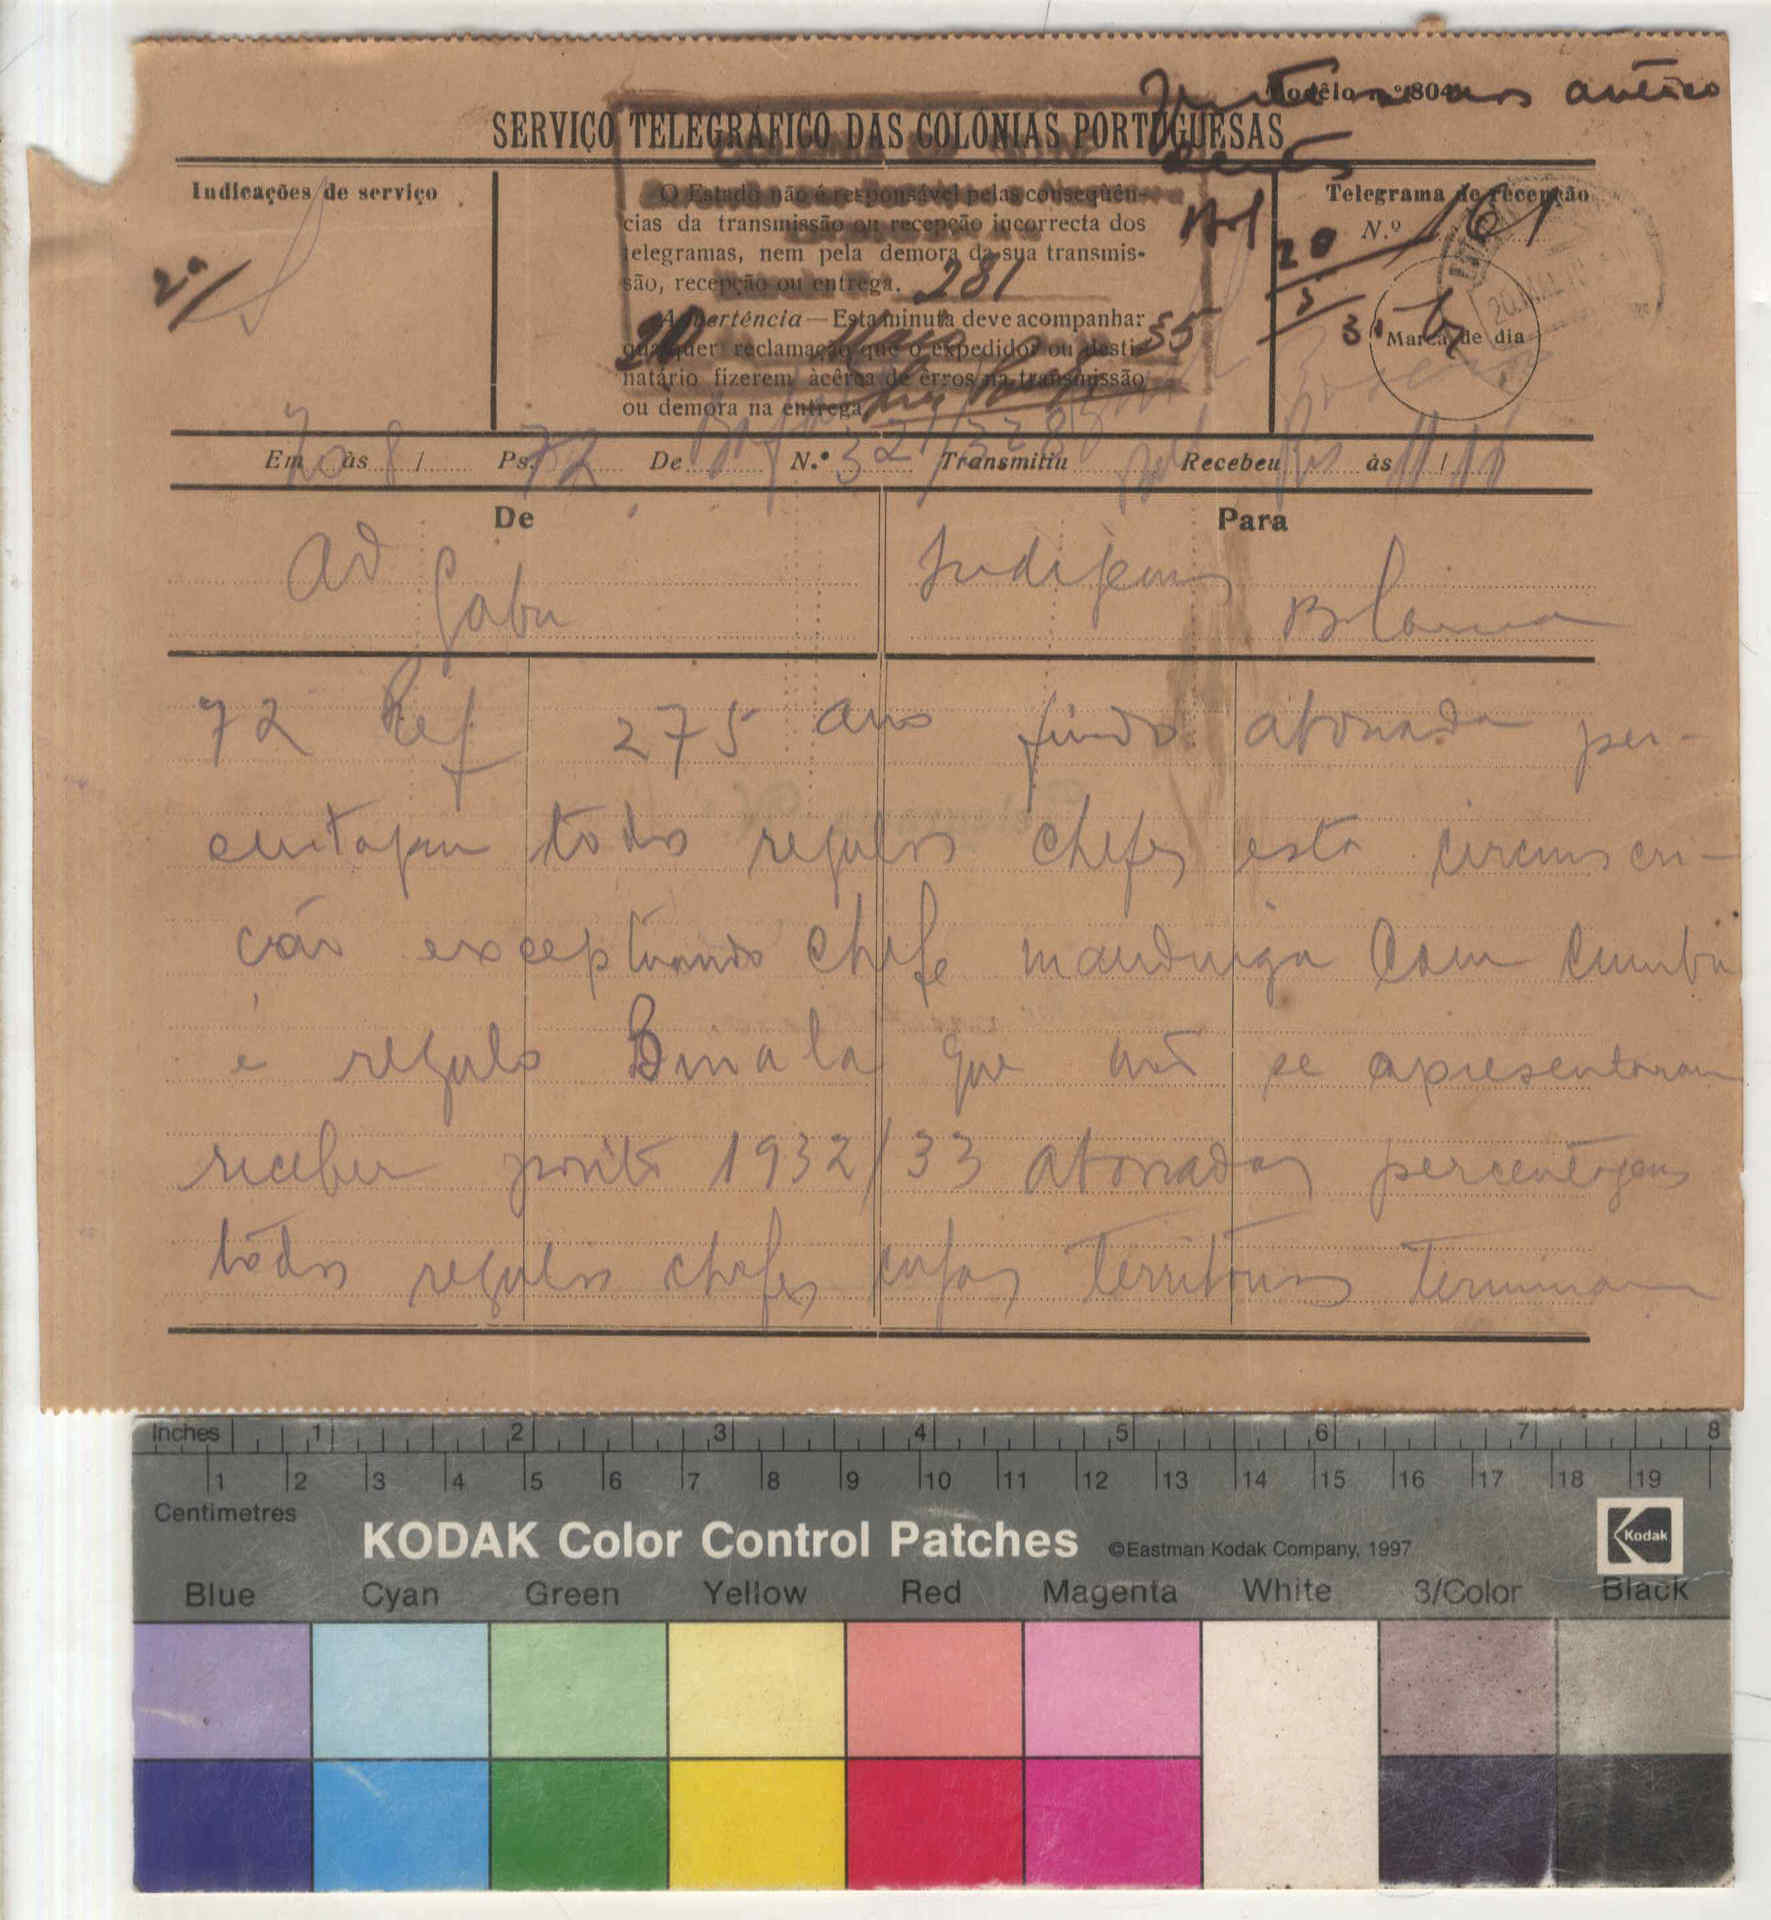 Modêlo n.º 804
Junte-se aos antece
dentes
SERVIÇO TELEGRÁFICO DAS COLÓNIAS PORTUGUESAS
Indicações de serviço
2ª/
O Estado não é responsável pelas conseqüên-
cias da transmissão ou recepção incorrecta dos
telegramas, nem pela demora da sua transmis-
são, recepção ou entrega.
281
Advertência — Esta minuta deve acompanhar
qualquer reclamação que o expedidor ou desti-
natário fizerem àcêrca de erros na transmissão
ou demora na entrega.
20 Março 35
Telegrama de recepção
N.º 161
20
3
35
Marca de dia
Em 20 às 8 / Ps. 72 De Bafatá N.º 321/328 Transmitiu Recebeu às 11 / 16
De
Para
Ad
Gabu
Indigenas
Bolama
72 Ref 275 ano findo abonada per-
centajem todos regulos chefes esta circunscri-
cão exceptuando chefe manduiga Com Cumba
e regulo Binala que não se apresentaram
receber ponto 1932/33 abonadas percentagens
todos regulos chefes cujos territorios terminam
Inches 1 2 3 4 5 6 7 8
1 2 3 4 5 6 7 8 9 10 11 12 13 14 15 16 17 18 19
Centimetres
KODAK Color Control Patches ©Eastman Kodak Company, 1997 Kodak
Blue Cyan Green Yellow Red Magenta White 3/Color Black